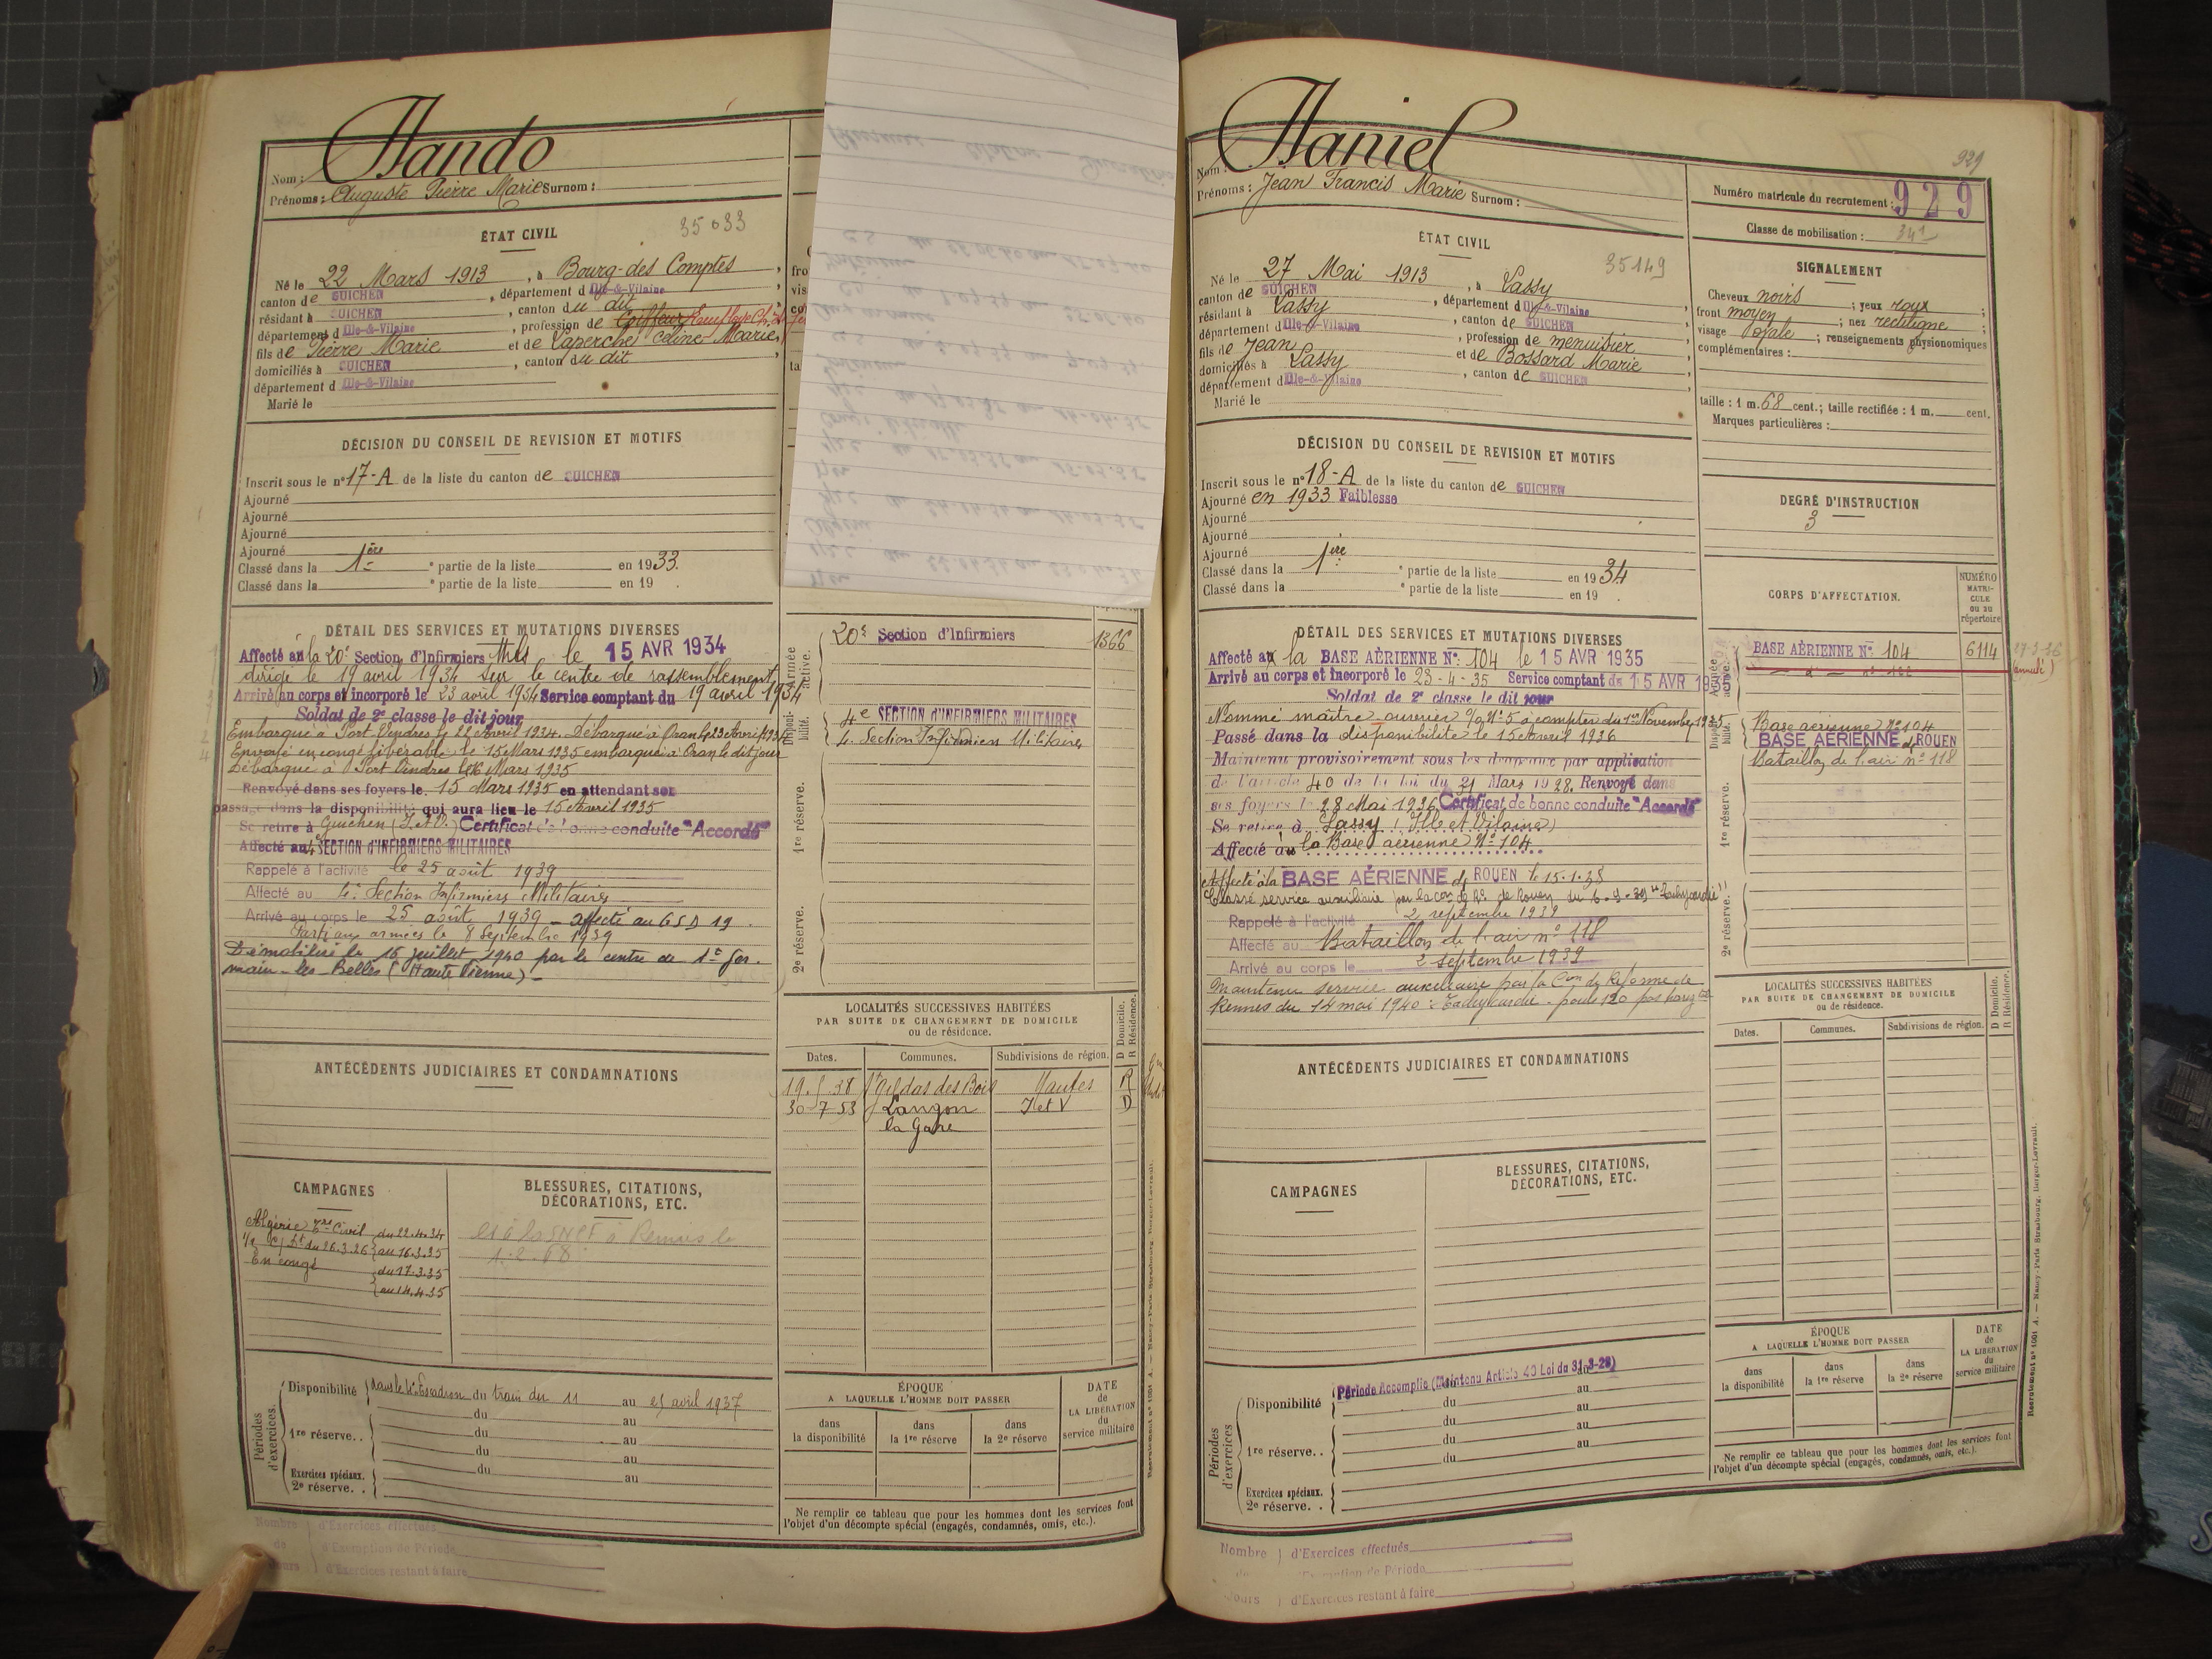 Nom : Hando
Prénoms : Auguste Pierre Marie Surnom :
35033
ÉTAT CIVIL
Né le 22 Mars 1913, à Bourg-des Comptes,
canton de GUICHEN, département d Ille-&-Vilaine
résidant à GUICHEN, canton du dit
département d Ille-&-Vilaine, profession de Coiffeur
fils de Pierre Marie et de Laperche Céline Marie
domiciliés à GUICHEN, canton du dit
département d Ille-&-Vilaine
Marié le
DÉCISION DU CONSEIL DE REVISION ET MOTIFS
Inscrit sous le n° 17-A de la liste du canton de GUICHEN
Ajourné
Ajourné
Ajourné
Ajourné
Classé dans la 1ère partie de la liste en 1933.
Classé dans la ° partie de la liste en 19 .
DÉTAIL DES SERVICES ET MUTATIONS DIVERSES
Affecté à la 20e Section d'Infirmiers Mres le 15 AVR 1934
dirigé le 19 avril 1934 sur le centre de rassemblement,
Arrivé au corps et incorporé le 23 avril 1934 Service comptant du 19 avril 1934
Soldat de 2e classe le dit jour
Embarqué à Port Vendres le 22 Avril 1934. Débarqué à Oran le 23 Avril 1934
Envoyé en congé libérable le 15 Mars 1935 embarqué à Oran le dit jour
Débarqué à Port Vendres le 16 Mars 1935
Renvoyé dans ses foyers le 15 Mars 1935 en attendant son
passage dans la disponibilité qui aura lieu le 15 Avril 1935
Se retire à Guichen (I. et V.) Certificat de bonne conduite "Accordé"
Affecté au 4e SECTION D'INFIRMIERS MILITAIRES
Rappelé à l'activité le 25 août 1939
Affecté au 4e Section Infirmiers Militaires
Arrivé au corps le 25 août 1939 - affecté au GSD 19.
Parti aux armées le 8 Septembre 1939
Démobilisé le 16 juillet 1940 par le centre de St Ger-
main-les-Belles (Haute Vienne)-
ANTÉCÉDENTS JUDICIAIRES ET CONDAMNATIONS
CAMPAGNES
Algérie
du 22.4.34
au 16.3.35
En congé
du 17.3.35
au 14.4.35
BLESSURES, CITATIONS,
DÉCORATIONS, ETC.
est à la SNCF à Rennes le
1.2.68
Périodes d'exercices.
Disponibilité dans le 4e Escadron du train du 11 au 25 avril 1937
du au
1re réserve. . du au
du au
Exercices spéciaux. du au
2e réserve. .
Nombre d'Exercices effectués
de d'Exemption de Période
Jours d'Exercices restant à faire
Armée active.
20e Section d'Infirmiers 1366
Disponibilité.
4e SECTION D'INFIRMIERS MILITAIRES
4e Section Infirmiers Militaires
1re réserve.
2e réserve.
LOCALITÉS SUCCESSIVES HABITÉES
PAR SUITE DE CHANGEMENT DE DOMICILE
ou de résidence.
D Domicile.
R Résidence.
Dates. Communes. Subdivisions de région.
19.5.38 St Gildas des Bois Nantes R
30-7-53 Langon I et V D
la Gare
ÉPOQUE
A LAQUELLE L'HOMME DOIT PASSER
dans la disponibilité
dans la 1re réserve
dans la 2e réserve
DATE
de
LA LIBÉRATION
du
service militaire
Ne remplir ce tableau que pour les hommes dont les services font
l'objet d'un décompte spécial (engagés, condamnés, omis, etc.).
Nom : Haniel
Prénoms : Jean Francis Marie Surnom :
929
Numéro matricule du recrutement : 929
Classe de mobilisation : 34
35149
ÉTAT CIVIL
Né le 27 Mai 1913, à Lassy,
canton de GUICHEN, département d Ille-&-Vilaine
résidant à Lassy, canton de GUICHEN
département d Ille-&-Vilaine, profession de menuisier
fils de Jean et de Bossard Marie
domiciliés à Lassy, canton de GUICHEN
département d Ille-&-Vilaine
Marié le
SIGNALEMENT
Cheveux noirs ; yeux roux ;
front moyen ; nez rectiligne ;
visage Ovale ; renseignements physionomiques
complémentaires :
taille : 1 m. 68 cent. ; taille rectifiée : 1 m. cent.
Marques particulières :
DÉCISION DU CONSEIL DE REVISION ET MOTIFS
Inscrit sous le n° 18-A de la liste du canton de GUICHEN
Ajourné en 1933 Faiblesse
Ajourné
Ajourné
Ajourné
Classé dans la 1ère ° partie de la liste en 1934
Classé dans la ° partie de la liste en 19 .
DEGRÉ D'INSTRUCTION
3
DÉTAIL DES SERVICES ET MUTATIONS DIVERSES
Affecté à la BASE AÉRIENNE N° 104 le 15 AVR 1935
Arrivé au corps et incorporé le 23-4-35 Service comptant du 15 AVR 1935
Soldat de 2e classe le dit jour
Nommé maître ouvrier à compter du 1er Novembre 1935
Passé dans la disponibilité le 15 Avril 1936
Maintenu provisoirement sous les drapeaux par application
de l'article 40 de la loi du 31 Mars 1928. Renvoyé dans
ses foyers le 28 Mai 1936 Certificat de bonne conduite "Accordé"
Se retire à Lassy (Ille et Vilaine)
Affecté à la Base aérienne N° 104
Affecté à la BASE AÉRIENNE de ROUEN le 15.1.38
Classé service auxiliaire par la Con de Ré de Rouen du 6.9.39 "Tachycardie"
Rappelé à l'activité 2 septembre 1939
Affecté au Bataillon de l'air n° 118
Arrivé au corps le 2 septembre 1939
Maintenu service auxiliaire par la Con de Réforme de
Rennes du 14 mai 1940 : Tachycardie - pouls 120
CORPS D'AFFECTATION.
NUMÉRO
MATRI-
CULE
ou au
répertoire
Armée active.
BASE AÉRIENNE N° 104 6114
(annulé)
Disponibilité.
Base aérienne N° 104
BASE AÉRIENNE de ROUEN
Bataillon de l'air n° 118
1re réserve.
2e réserve.
LOCALITÉS SUCCESSIVES HABITÉES
PAR SUITE DE CHANGEMENT DE DOMICILE
ou de résidence.
D Domicile.
R Résidence.
Dates. Communes. Subdivisions de région.
ANTÉCÉDENTS JUDICIAIRES ET CONDAMNATIONS
CAMPAGNES
BLESSURES, CITATIONS,
DÉCORATIONS, ETC.
Périodes d'exercices
Période Accomplie (Maintenu Article 40 Loi du 31-3-28)
Disponibilité du au
du au
1re réserve. . du au
du au
Exercices spéciaux.
2e réserve. .
ÉPOQUE
A LAQUELLE L'HOMME DOIT PASSER
dans la disponibilité
dans la 1re réserve
dans la 2e réserve
DATE
de
LA LIBÉRATION
du
service militaire
Ne remplir ce tableau que pour les hommes dont les services font
l'objet d'un décompte spécial (engagés, condamnés, omis, etc.).
Nombre d'Exercices effectués
de d'Exemption de Période
Jours d'Exercices restant à faire